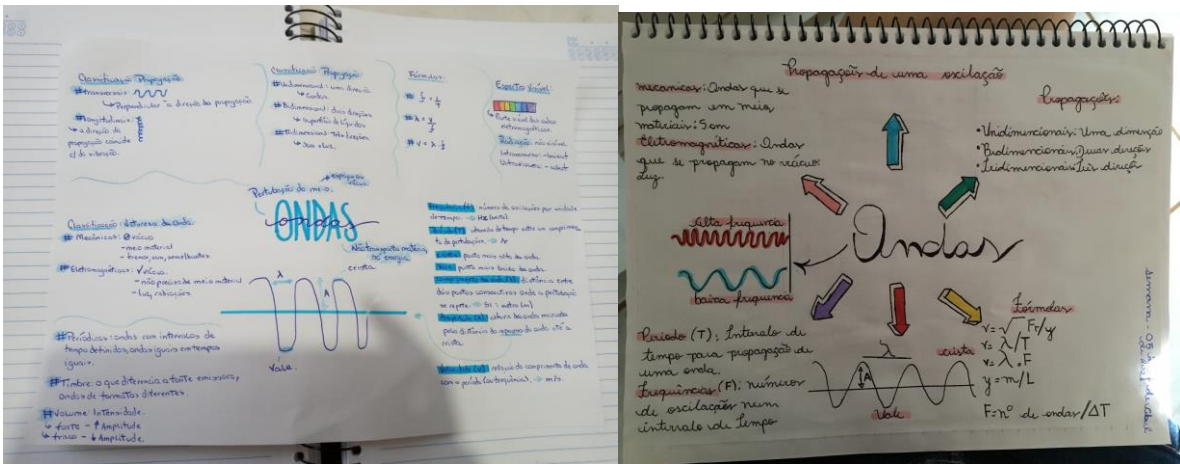 Classificação Propagação
# transversais:
↳ Perpendicular a direção da propagação
# Longitudinais:
↳ a direção da
propagação coincide
c/ da vibração.
Classificação Propagação
# Unidimensional: uma direção
↳ Cordas
# Bidimensional: duas direções
↳ superfície de líquidos
# Tridimensional: três direções
↳ som e luz.
Fórmulas
# λ = v/f
# V = λ . f
Espectro Visível:
↳ Parte visível das ondas
eletromagnéticas.
Radiação: não visível
Pertubação do meio.
ONDAS
ondas
Não transporta matéria,
só energia
Classificação: Natureza da onda
# Mecânicas: vácuo
- meio material
- 
# Eletromagnéticas: ✓ vácuo.
- não precisa de meio material
- luz, radiações.
λ
A
crista
Vale.
número de oscilações por unidade
de tempo. → Hz (hertz)
ponto mais alto da onda.
ponto mais baixo da onda.
distância entre
dois pontos consecutivos onde a pertubação
se repete. → SI: metro (m)
Amplitude (A): altura da onda marcada
pela distância do da onda até a
crista.
Velocidade (V): relação do comprimento de onda
com o período (ou frequência). → m/s.
# Periódicas: ondas com intervalos de
tempo definidos, ondas iguais em tempos
iguais.
# Timbre: o que diferencia a fonte emissora,
ondas de formatos diferentes.
# Volume Intensidade.
↳ forte - ↑ Amplitude
↳ fraco - ↓ Amplitude.
Propagações de uma oscilação
mecanicas: Ondas que se
propagam em meios
materiais: Som
Eletromagnéticas: Ondas
que se propagam no vácuo:
luz.
Propagações:
• Unidimencionais: Uma dimenção
• Bidimencionais: Duas direções
• Tridimencionais: Três direções
Ondas
Alta frequencia
baixa frequencia
Periodo (T): Intervalo de
tempo para propagação de
uma onda.
Frequências (F): números
de oscilações num
intervalo de tempo
λ
crista
A
Vale
Fórmulas
V=√Fr/y
V= λ/T
V= λ.F
y=m/L
F=nº de ondas/ΔT